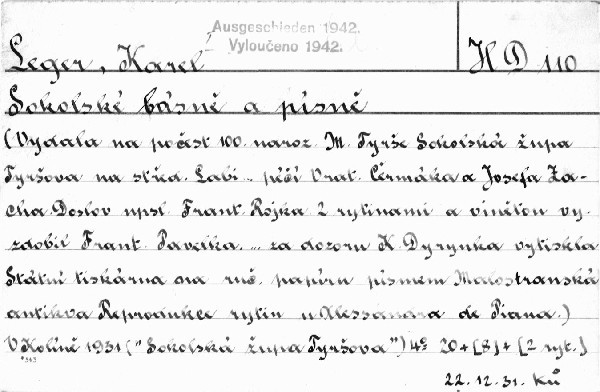 Ausgeschieden 1942.
Vyloučeno 1942.
Leger, Karel
H D 110
Sokolské básně a písně
(Vydala na počest 100. naroz. M. Tyrše Sokolská župa
Tyršova na střed. Labi .. péčí Vrat. Čermáka a Josefa Za-
cha. Doslov npsl. Frant. Rojka. 2 rytinami a vinětou vy-
zdobil Frant. Pavelka, ... za dozoru K. Dyrynka vytiskla
Státní tiskárna na ruč. papíru písmem Malostranská
antikva. Reprodukce rytin u Alessandra de Piana.)
V Kolíně 1931 ("Sokolská župa Tyršova") 4° 20+[8]+[2 ryt.]
22.12.31. Ků